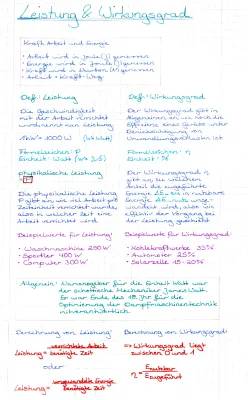 Leistung & Wirkungsgrad
Kraft, Arbeit und Energie
- Arbeit wird in Joule (J) gemessen
- Energie wird in Joule (J) gemessen
- Kraft wird in Newton (N) gemessen
- Arbeit = Kraft · Weg
Def.: Leistung
Die Geschwindigkeit
mit der Arbeit verrichtet
wird nennt man Leistung
1kW = 1000 W
Formelzeichen: P
Einheit: Watt
physikalische Leistung
Die physikalische Leistung
P gibt an wie viel Arbeit pro
Zeiteinheit verrichtet wurde,
also in welcher Zeit eine
Arbeit verrichtet wird
Beispielwerte für Leistung:
- Waschmaschine 250 W
- Sportler 400 W
- Computer 300 W
Def.: Wirkungsgrad
Der Wirkungsgrad gibt im
Allgemeinen an wie hoch die
Effizienz eines Geräts unter
Berücksichtigung von
ist
Formelzeichen: η
Einheit: %
Der Wirkungsgrad η
gibt an wie
Anteil die zugeführte
Energie in nutzbare
Energie
wurde, also wie
effektiv der Vorgang bei
der Leistung
Beispielwerte für Wirkungsgrad:
- Kohlekraftwerke 35%
- Automotor 25%
- Solarzelle 15-20%
Allgemein: Namensgeber für die Einheit Watt war
der schottische Mechaniker James Watt.
Er war Ende des 18. Jhr für die
Optimierung der Dampfmaschinentechnik
mitverantwortlich.
Berechnung von Leistung:
Leistung = verrichtete Arbeit
benötigte Zeit
oder
Leistung = umgewandelte Energie
benötigte Zeit
Berechnung von Wirkungsgrad:
=> Wirkungsgrad liegt
zwischen 0 und 1
η =